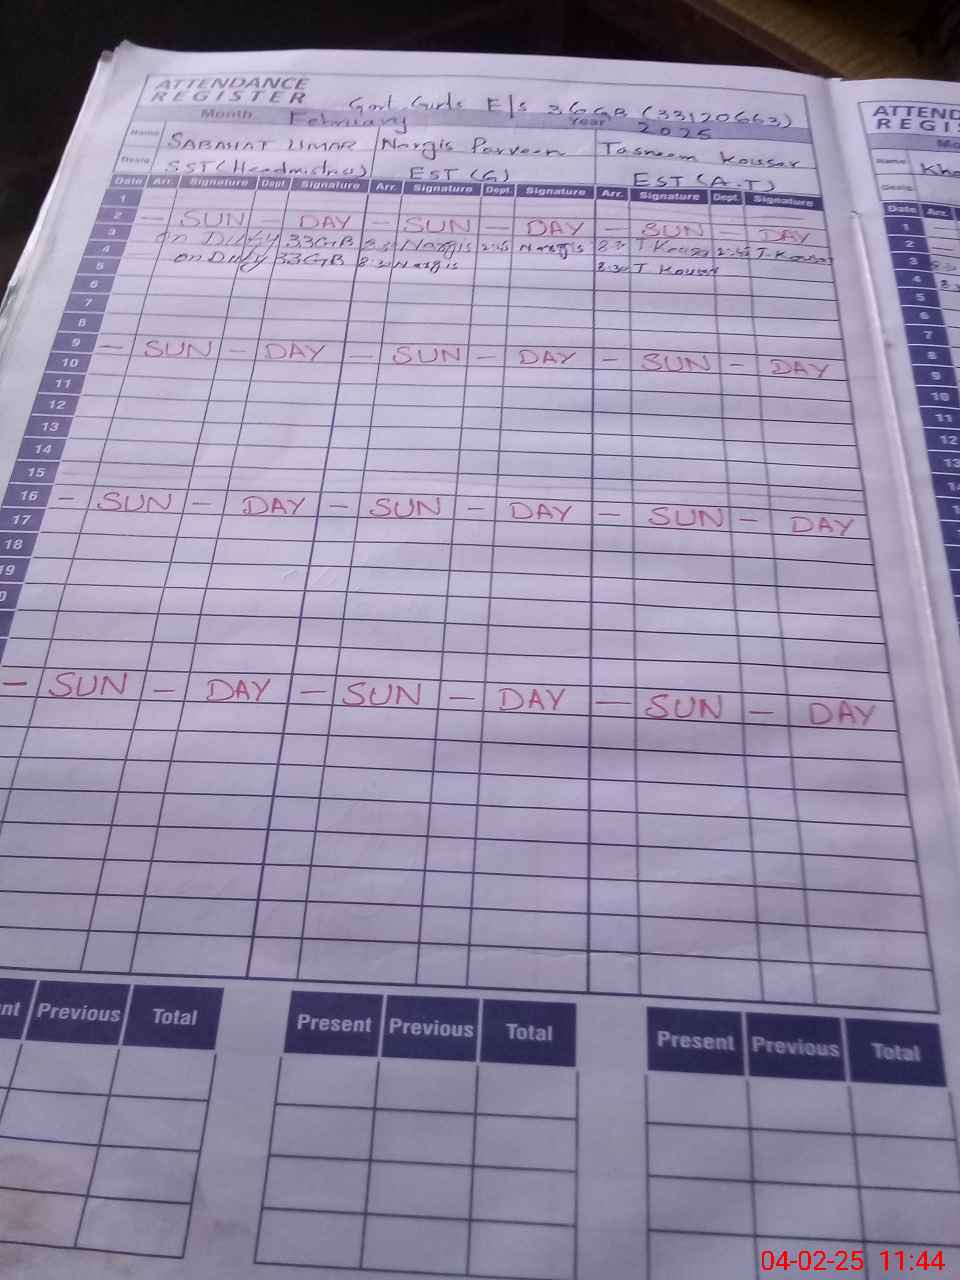 ATTENDANCE
REGISTER
Govt. Girls E/S 36GB (33120663)
Month February Year 2025
Name SABAHAT UMAR Nargis Parveen Tasneem Kousar
Desig. SST (Headmistress) EST (G) EST (A.T)
Date Arr. Signature Dept. Signature Arr. Signature Dept. Signature Arr. Signature Dept. Signature
1
2 — SUN — DAY — SUN — DAY — SUN — DAY
3 on Duty 33GB Nargis 2:45 Nargis T. Kousar 2:45 T. Kousar
4 on Duty 33GB 8:30 Nargis 8:30 T. Kousar
5
6
7
8
9 — SUN — DAY — SUN — DAY — SUN — DAY
10
11
12
13
14
15
16 — SUN — DAY — SUN — DAY — SUN — DAY
17
18
19
0
— SUN — DAY — SUN — DAY — SUN — DAY
nt Previous Total
Present Previous Total
Present Previous Total
ATTEND
REGIS
Mo
Name Kha
Desig.
Date Arr.
1 —
2 —
3
4
5
6
7
8
9
10
11
12
13
04-02-25 11:44